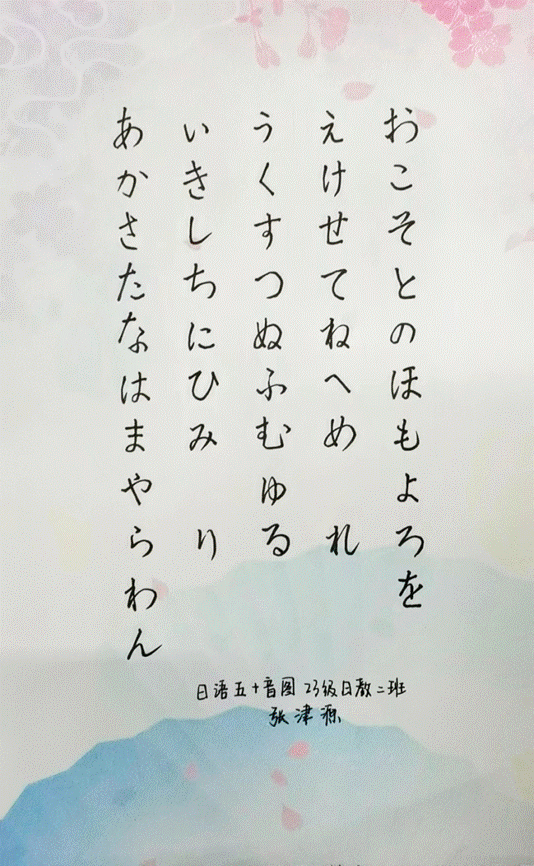 あかさたなはまやらわん
いきしちにひみ り
うくすつぬふむゆる
えけせてねへめ れ
おこそとのほもよろを
日语五十音图 23级日教二班
张津源